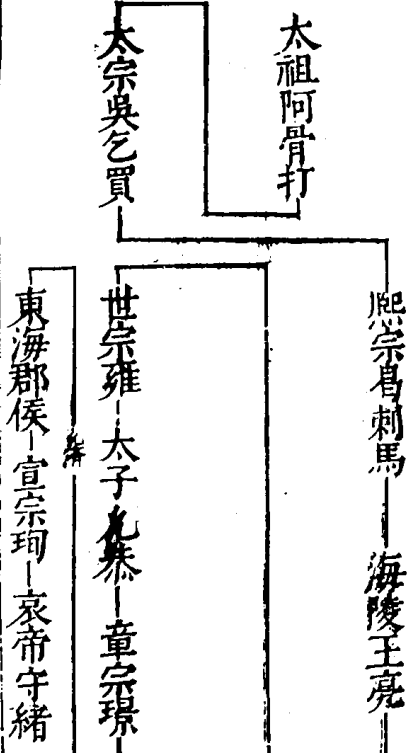 太祖阿骨打
太宗吳乞買
熙宗曷剌馬
海陵王亮
世宗雍
太子允恭
章宗璟
允濟
東海郡侯
宣宗珣
哀帝守緒